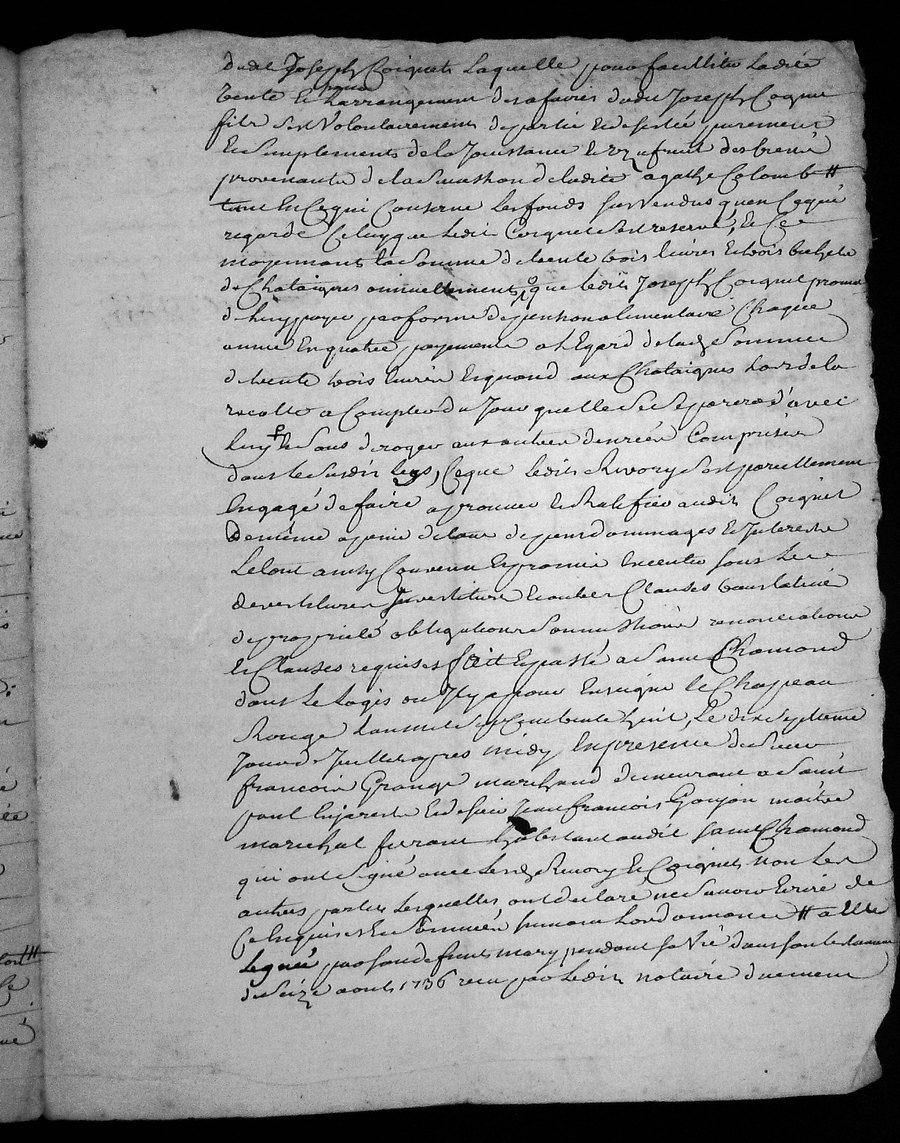 dudit Joseph Coignet laquelle pour facilliter ladite
vente et pour larrangement des afaires dudit Joseph Coignet
fils sest volontairement departie et desistée purement
et simplement de la Jouissance et usufruit des biens
provenants de la succession de ladite agathe Colomb #
tant En ce qui Conserne les fonds survendus quen ce qui
regarde Celuy que ledit Coignet sest reservé, et Ce
moyennant la somme de trente trois livres et trois bichets
de Chataignes annuellement, que ledit Joseph Coignet promet
de luy payer par forme de pention alimentaire Chaque
année En quatre payements a l'Egard de lad somme
de trente trois livres Et quand aux Chataignes lors de la
recolte a Compter du Jour quelle se separera d'avec
luy et sans deroger aux autres denrées Comprises
dans le susdit legs, Ce que ledit Rivory sest pareillement
Engagé de faire aprouver et ratifier audit Coignet
de même a peine de tous depens dommages et Interests
Le tout ainsy Convenu Et promis Executer sous les
devestitures Investiture et autres Clauses translative
de proprieté obligations soumissions renonciations
et Clauses requises fait Et passé a Saint Chamond
dans le logis ou Il y a pour Enseigne le Chapeau
Rouge lan mil sept Cent trente huit, Le dix septieme
Jour de Juillet apres midy En presence de sieur
francois Grange marchand demeurant a Saint
paul En jarest et de sieur Jean francois Goujon maitre
marechal ferrant habitant audit Saint Chamond
qui ont signé avec lesd Rivory et Coignet, non les
autres parties lesquelles ont declaré ne scavoir Ecrire de
Ce Enquises et sommées suivant lordonnance # a Elle
legué par son defunt mary pendant sa vie dans son testament
du seize aoust 1736 recu par ledit notaire duement